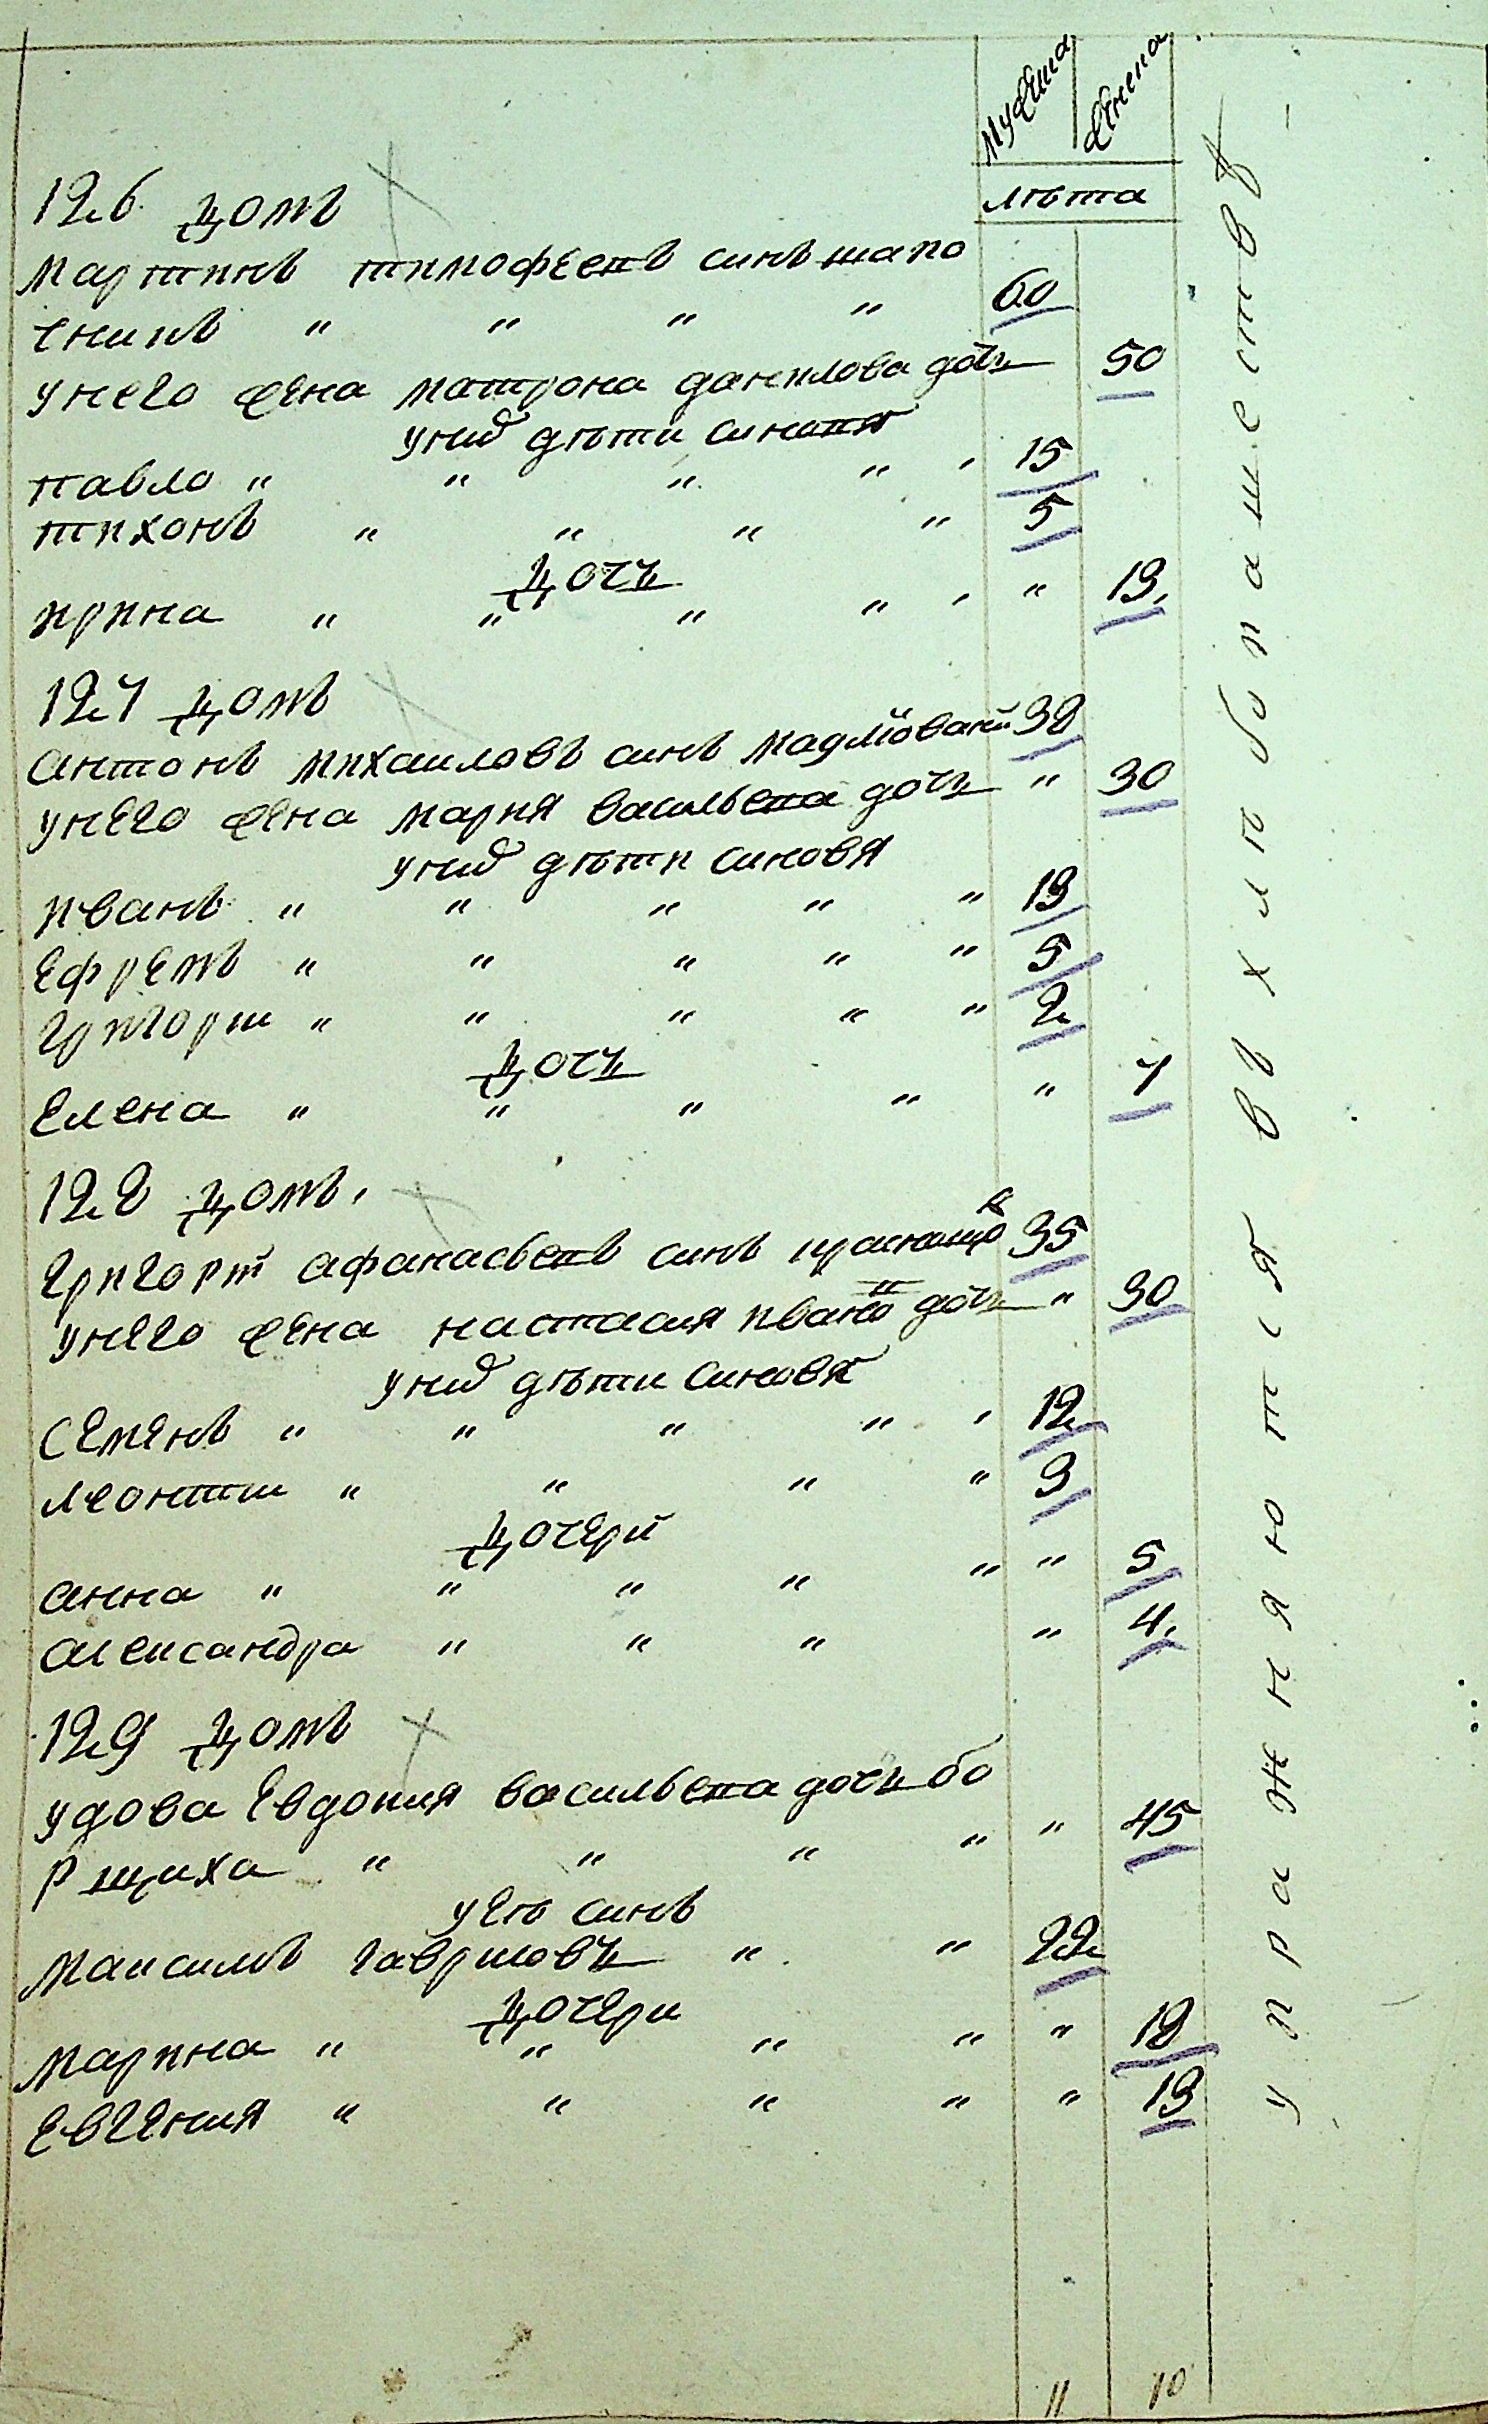 мужеска женска
лѣта
126 домъ
мартинъ тимофеевъ синъ шапо
чникъ " " " " 60
унего жена матрона данилова дочъ 50
унихъ дѣти синовя
павло " " " " 15
тихонъ " " " " 5
дочъ
ирина " " " " " 13
127 домъ
антонъ михаиловъ синъ 38
унего жена мария васильева дочъ " 30
унихъ дѣти синовя
иванъ " " " " " 13
ефремъ " " " " " 5
григории " " " " " 2
дочъ
елена " " " " " 7
128 домъ
григорій афанасьевъ синъ 35
унего жена настасия дочъ " 30
унихъ дѣти синовя
семенъ " " " " 12
леонтии " " " " 3
дочери
анна " " " " " " 5
александра " " " " 4
129 домъ
удова евдокия васильева дочъ бо
рщиха " " " " " 45
уеѣ синъ
максимъ гавриловъ " " 22
дочери
марина " " " " " 18
евгения " " " " " 13
11 10
упражняются въ хлибопашествѣ